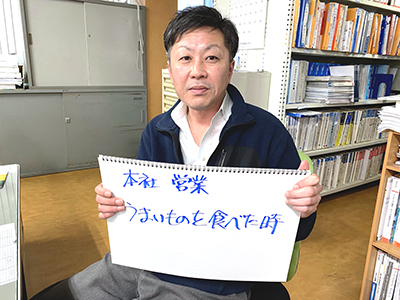 本社 営業
うまいものを食べた時